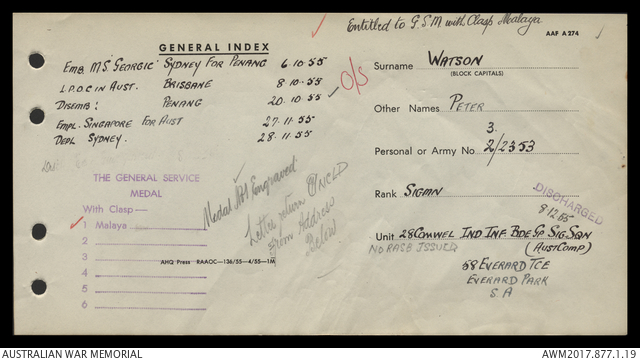 Entitled to G.S.M with Clasp Malaya
AAF A 274
GENERAL INDEX
EMB M.S. 'GEORGIC' SYDNEY FOR PENANG 6.10.55
L.P.O.C IN AUST. BRISBANE 8.10.55
DISEMB: PENANG 20.10.55
EMPL. SINGAPORE FOR AUST 27.11.55
DEPL SYDNEY. 28.11.55
O/S
Surname WATSON
(BLOCK CAPITALS)
Other Names PETER
3.
Personal or Army No 2/2353
Rank SIGMN
DISCHARGED
8.12.55
Unit 28 COMWEL IND INF BDE GP SIG SQN
(AUST COMP)
NO RASB ISSUED
58 EVERARD TCE
EVERARD PARK
S.A
THE GENERAL SERVICE
MEDAL
With Clasp—
1 Malaya
2
3
4
5
6
Medal Not Engraved
Letter return
From Address
Below
AHQ Press RAAOC—136/55—4/55—1M
AUSTRALIAN WAR MEMORIAL
AWM2017.877.1.19